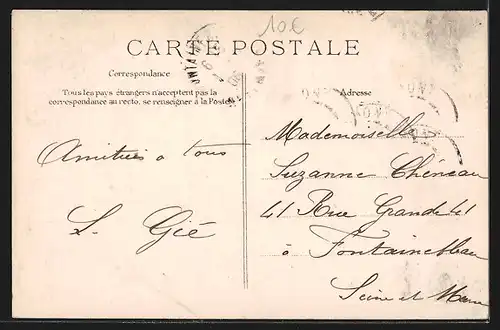 10€
CARTE POSTALE
Correspondance
Tous les pays étrangers n'acceptent pas la
correspondance au recto, se renseigner à la Poste
Adresse
Amitiés à tous
L. Gié
Mademoiselle
Suzanne Chéneau
41 Rue Grande 41
à Fontainebleau
Seine et Marne